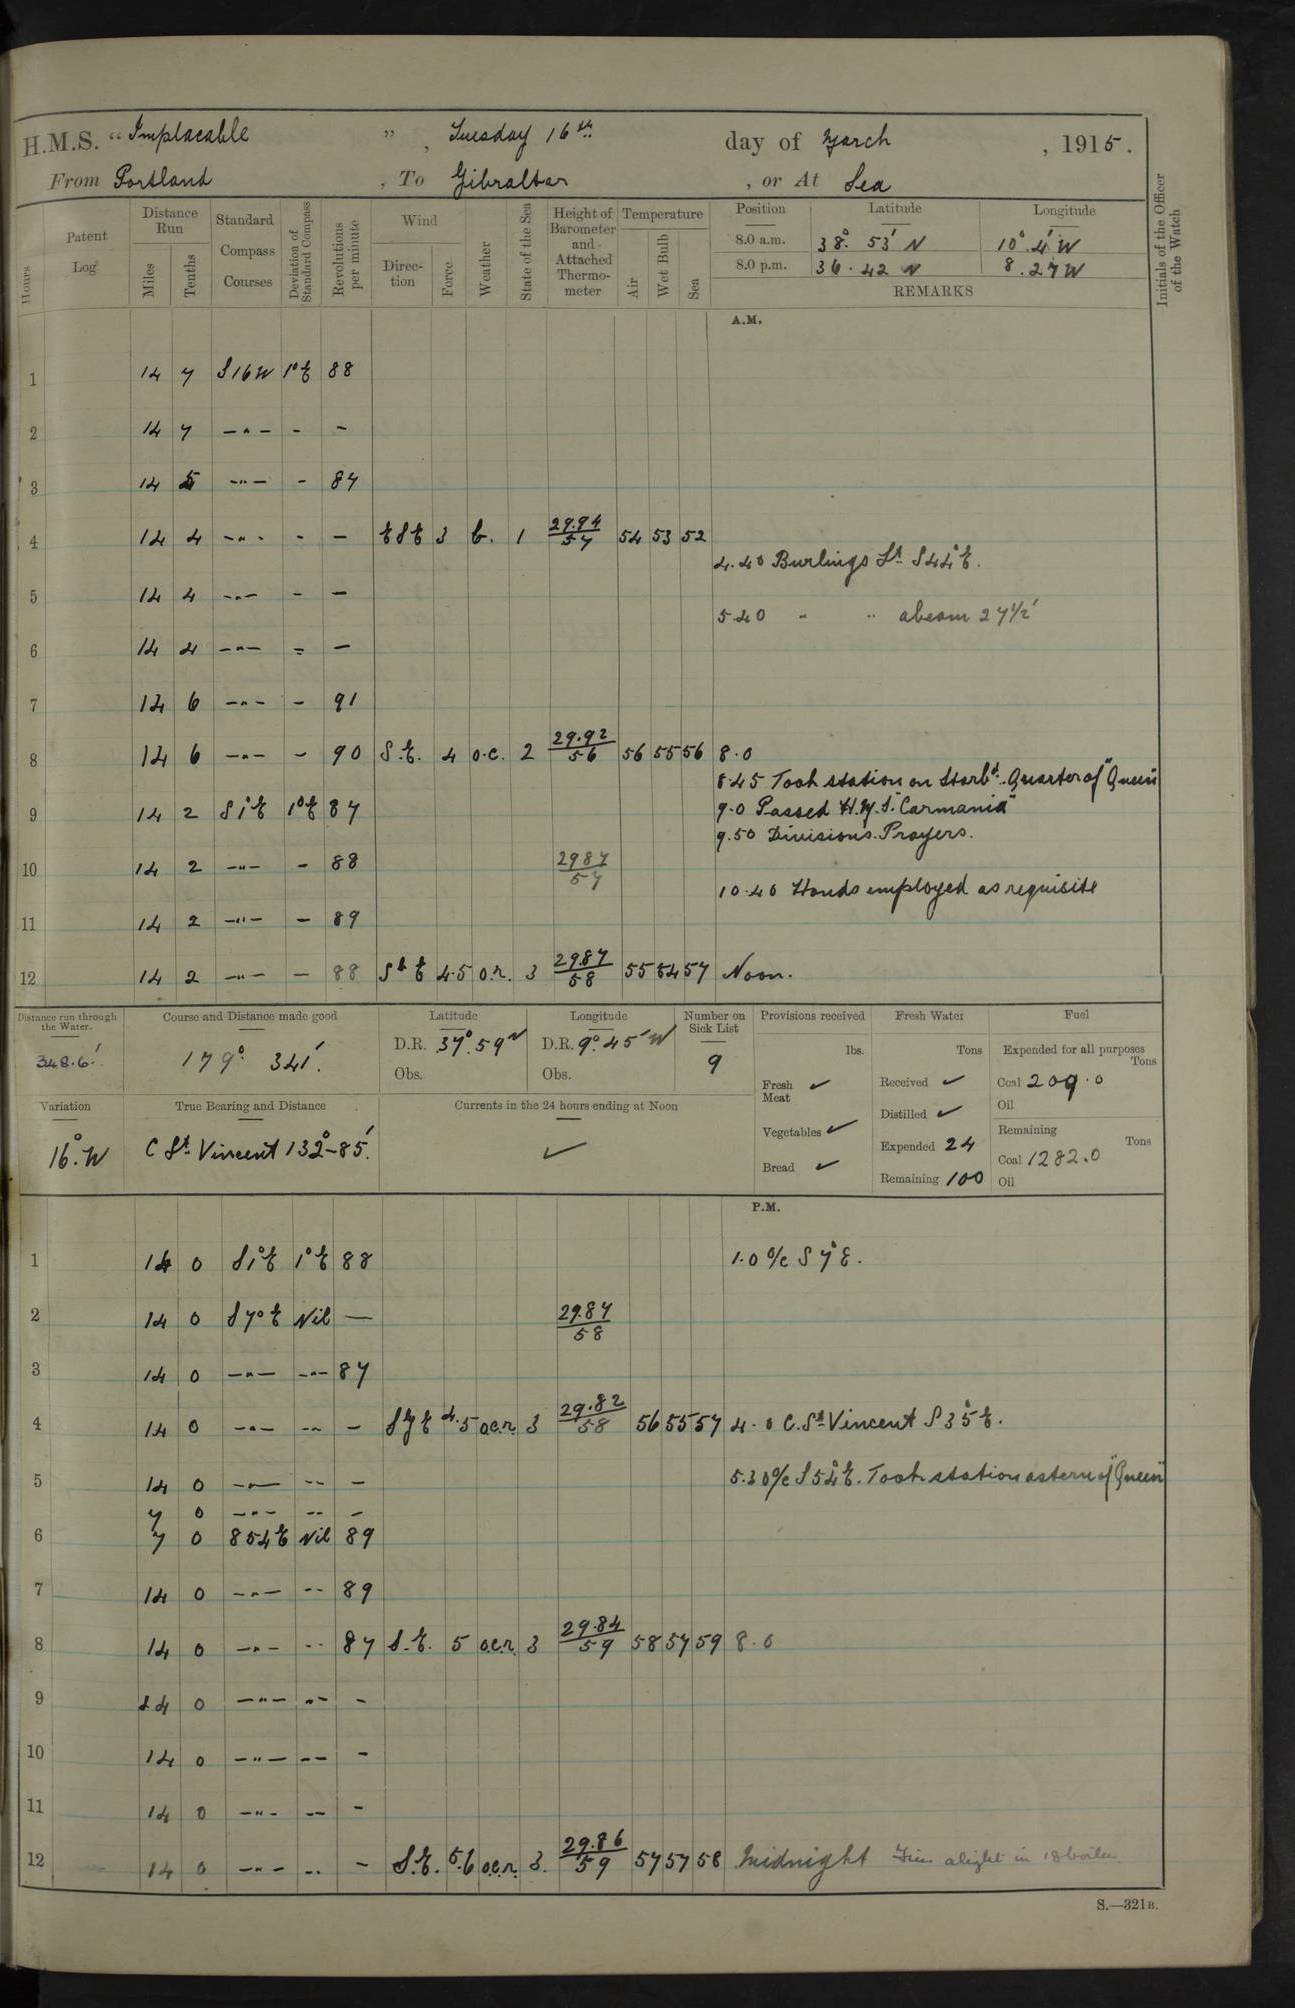 H.M.S. "Implacable", Tuesday 16th day of March, 1915.
From Portland, To Gibraltar, or At Sea
Hours Patent Log Distance Run Miles Tenths Standard Compass Courses Deviation of Standard Compass Revolutions per minute Wind Direction Force Weather State of the Sea Height of Barometer and Attached Thermometer Temperature Air Wet Bulb Sea Position Latitude Longitude Initials of the Officer of the Watch
8.0 a.m. 38°. 53' N 10°. 4' W
8.0 p.m. 36. 42 N 8. 27 W
REMARKS
A.M.
1 14 7 S16W 1°E 88
2 14 7 —"— - -
3 14 5 —"— - 87
4 14 4 —"— - - ESE 3 b. 1 29.94/57 54 53 52
4.40 Burlings Lt. S44°E.
5 14 4 —"— - -
5 40 " " abeam 27½'
6 14 4 —"— - -
7 14 6 —"— - 91
8 14 6 —"— - 90 S.E. 4 o.c. 2 29.92/56 56 55 56 8.0
8.45 Took station on Starbd. Quarter of "Queen"
9 14 2 S1°E 1°E 87 9.0 Passed H.M.S. "Carmania"
9.50 Divisions. Prayers.
10 14 2 —"— - 88 29 87/57
10.40 Hands employed as requisite
11 14 2 —"— - 89
12 14 2 —"— - 88 SbE 4.5 o.r. 3 29.87/58 55 54 57 Noon.
Distance run through the Water. Course and Distance made good Latitude Longitude Number on Sick List Provisions received Fresh Water Fuel
348.6' 179° 341'. D.R. 37°.59' N D.R. 9°.45' W 9 lbs. Tons Expended for all purposes Tons
Obs. Obs. Fresh Meat ✓ Received ✓ Coal 209.0
Oil
Variation True Bearing and Distance Currents in the 24 hours ending at Noon Vegetables ✓ Distilled ✓ Remaining Tons
16°.W C St. Vincent 132°-85'. ✓ Bread ✓ Expended 24 Coal 1282.0
Remaining 100 Oil
P.M.
1 14 0 S1°E 1°E 88 1.0 a/c S 7°E.
2 14 0 S7°E Nil — 29.87/58
3 14 0 —"— —"— 87
4 14 0 —"— -- - 4.5 o.c.r. 3 29.82/58 56 55 57 4.0 C. St. Vincent S 35°E.
5 14 0 —"— -- - 5.30 a/c S54°E. Took station astern of "Queen"
7 0 —"— -- -
6 7 0 S54E Nil 89
7 14 0 —"— -- 89
8 14 0 —"— -- 87 S.E. 5 o.c.r. 3 29.84/59 58 57 59 8.0
9 14 0 —"— -"- -
10 14 0 —"— -- -
11 14 0 —"— -- -
12 14 0 —"— -- - S.E. 5.6 o.c.r. 3. 29.86/59 57 57 58 Midnight Fires alight in 18 boilers.
S.—321B.